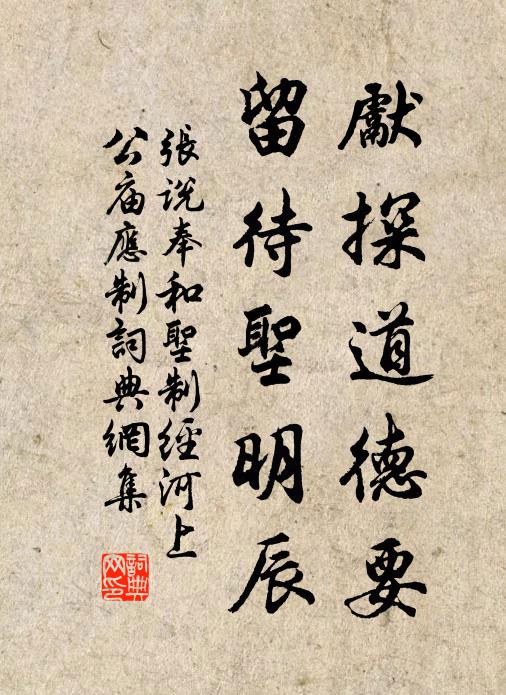 獻探道德要
留待聖明辰
張說奉和聖制經河上
公庙應制詞典網集
詞典
网印